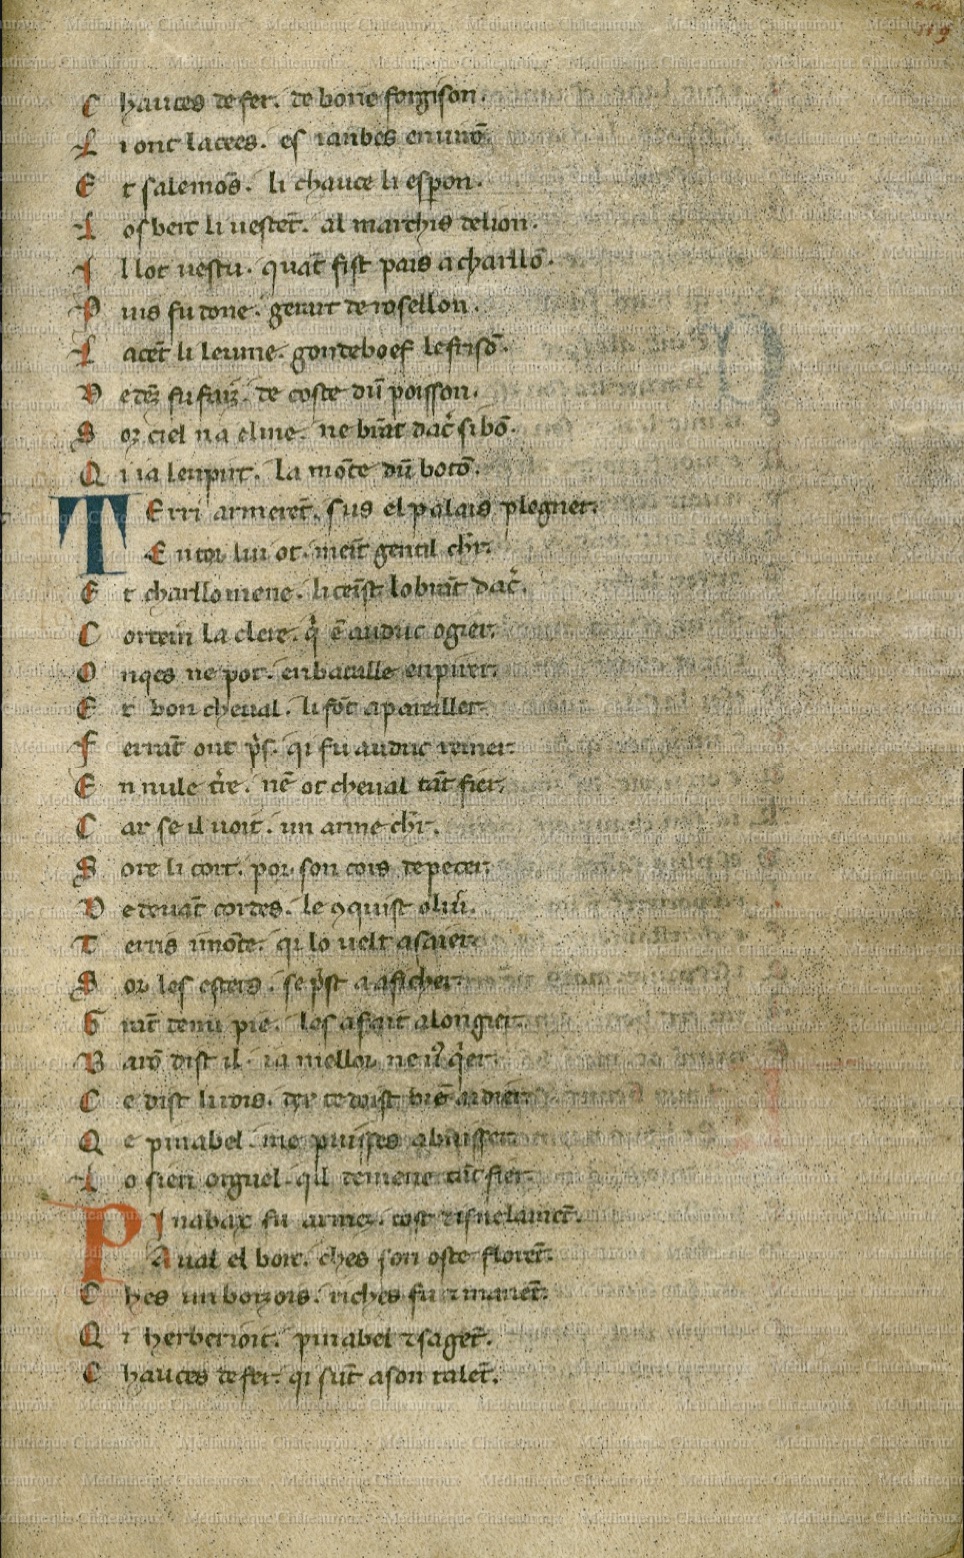 C hauces de fer. de bone forgison.
L i ont lacees. es ianbes enuirō.
E t salemōs. li chauce li espon.
L osbert li uestēt. al marchis delion.
I l lot uestu. quāt fist pais a charllō.
P uis fu done. gerart de rosellon.
L acēt li leiume. gondeboef le frisō.
D e coste dū poisson.
S oz ciel na elme. ne brāt dac si bō.
Q i ia lenpirt. la mōte dū botō.
T Erri armerēt. sus el palais plegner.
E ntor lui ot. meīt gentil chr.
E t charllomene. li ceīst lo brāt dac.
C ortein la clere. q ē auduc ogier.
O nqes ne pot. en bataille enpirier.
E t bon cheual. li fōt apareiller.
F errāt ont ps. qi fu auduc rainer.
E n nule tre. nē ot cheual tāt fier.
C ar se il uoit. un arme chr.
S ore li cort. por son cors depecer.
D edeuāt cordes. le 9quist oliu.
T erris imōte. qi lo uelt asaier.
S or les esters. se pst a aficher.
G rāt demi pie. les a fait alongier.
B arō dist il. ia mellor ne q er.
C e dist li rois. der te doist biē aidier.
Q e pinabel. me puisses abaisser.
L o fieri orguel. qil demene tāt fier.
P Inabax fu arme. tost risnelamēt.
A ual el borc. ches son oste florēt.
C hes un borzois. riches fu manēt.
Q i herberioit. pinabel sa gēt.
C hauces de fer. qi sūt a son talēt.
Médiathèque Châteauroux